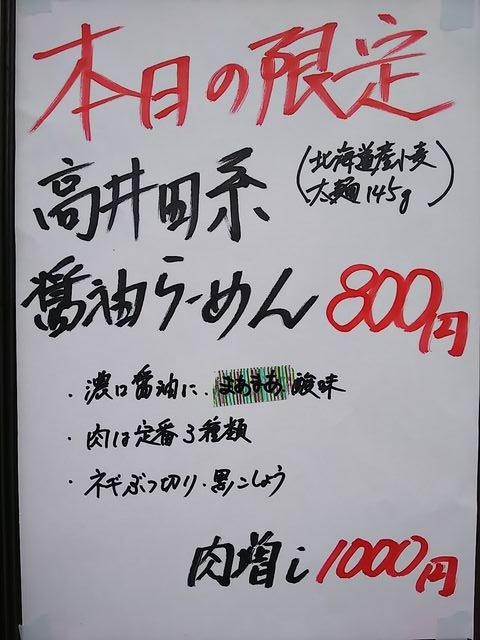 本日の限定
高井田系
(北海道産小麦
太麺145g)
醤油らーめん 800円
・濃口醤油に、まあまあ酸味
・肉は定番3種類
・ネギぶつ切り・黒こしょう
肉増し1000円